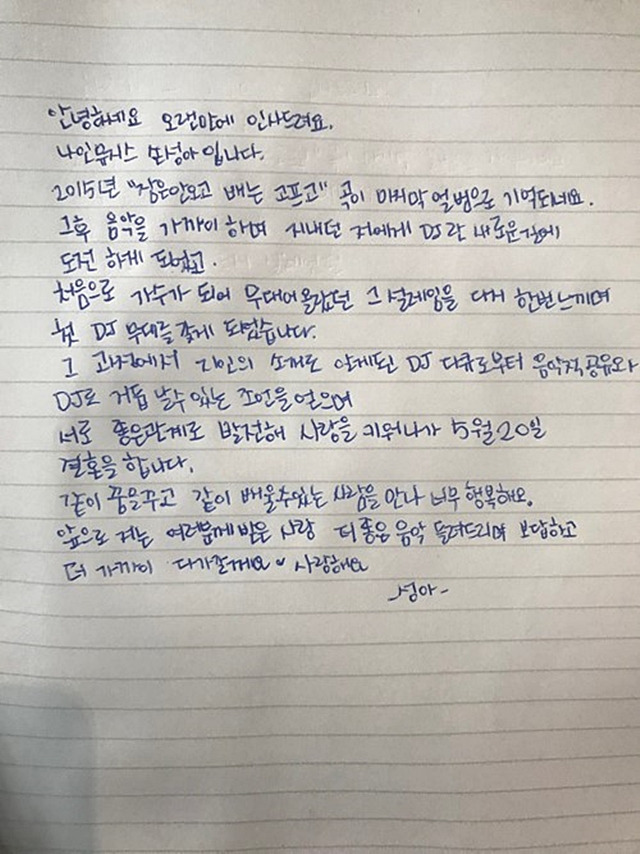 안녕하세요 오랜만에 인사드려요.
나인뮤지스 쏘성아입니다.
2015년 "잠은안오고 배는 고프고" 곡이 마지막 얼범으로 기억되네요.
그후 음악을 가까이 하며 지내던 저에게 DJ란 새로운길에
도전 하게 되었고.
처음으로 가수가 되어 무대에올랐던 그 설레임을 다시 한번느끼며
첫 DJ 무대를 갖게 되었습니다.
그 과정에서 지인의 소개로 알게된 DJ 디큐로부터 음악적공유와
DJ로 거듭 날수있는 조언을얻으며
서로 좋은관계로 발전해 사랑을 키워나가 5월20일
결혼을 합니다.
같이 꿈을꾸고 같이 배울수있는 사람을 만나 너무 행복해요.
앞으로 저는 여러분께받은 사랑 더좋은 음악 들려드리며 보답하고
더 가까이 다가갈께요 사랑해요
-성아-